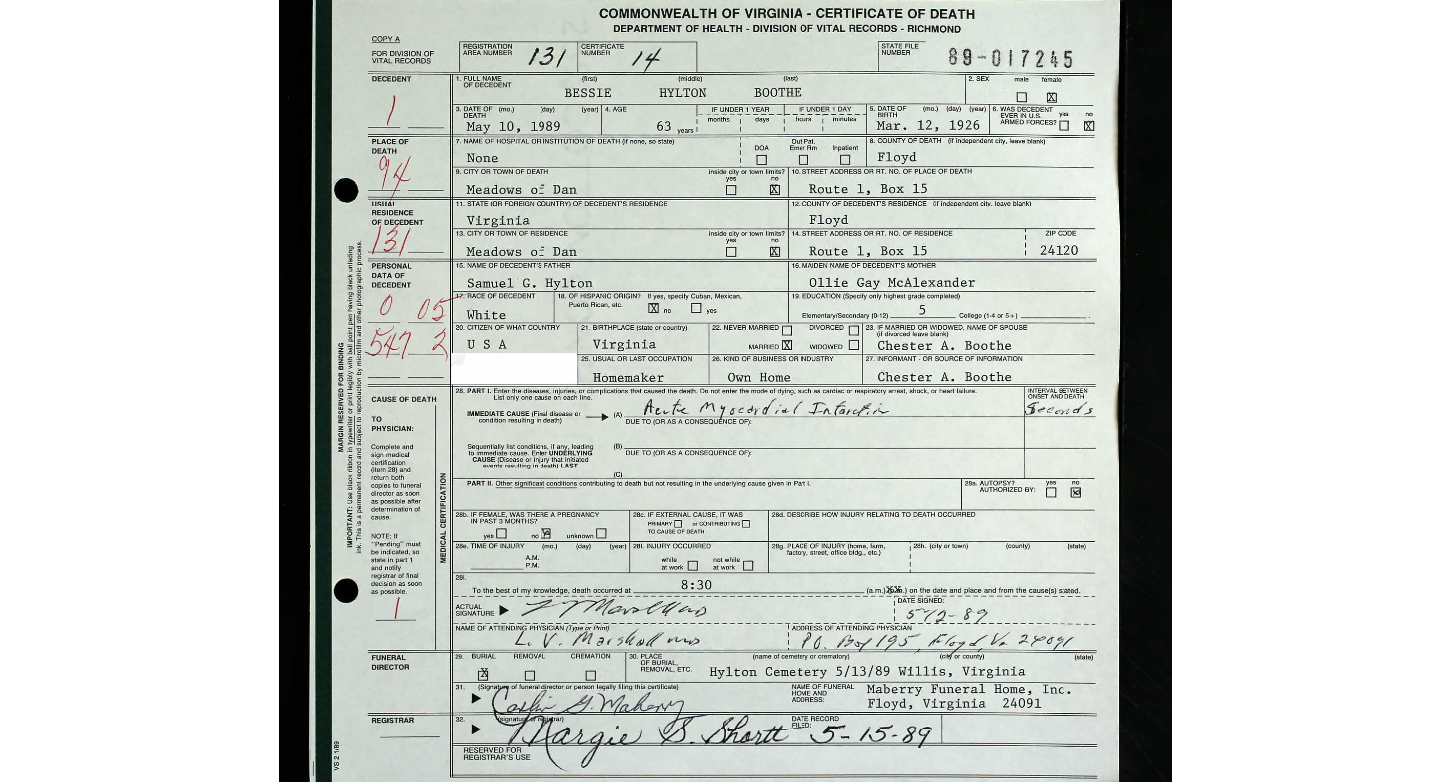 COMMONWEALTH OF VIRGINIA - CERTIFICATE OF DEATH
DEPARTMENT OF HEALTH - DIVISION OF VITAL RECORDS - RICHMOND
COPY A
FOR DIVISION OF VITAL RECORDS
REGISTRATION AREA NUMBER 131 CERTIFICATE NUMBER 14 STATE FILE NUMBER 89-017245
DECEDENT
1
1. FULL NAME OF DECEDENT (first) (middle) (last) 2. SEX male female
BESSIE HYLTON BOOTHE X
3. DATE OF DEATH (mo.) (day) (year) 4. AGE IF UNDER 1 YEAR IF UNDER 1 DAY 5. DATE OF BIRTH (mo.) (day) (year) 6. WAS DECEDENT EVER IN U.S. ARMED FORCES? yes no
May 10, 1989 63 years months days hours minutes Mar. 12, 1926 X
PLACE OF DEATH
94
7. NAME OF HOSPITAL OR INSTITUTION OF DEATH (if none, so state) DOA Out Pat. Emer Rm Inpatient 8. COUNTY OF DEATH (if independent city, leave blank)
None Floyd
9. CITY OR TOWN OF DEATH inside city or town limits? yes no 10. STREET ADDRESS OR RT. NO. OF PLACE OF DEATH
Meadows of Dan X Route 1, Box 15
USUAL RESIDENCE OF DECEDENT
131
11. STATE (OR FOREIGN COUNTRY) OF DECEDENT'S RESIDENCE 12. COUNTY OF DECEDENT'S RESIDENCE (if independent city, leave blank)
Virginia Floyd
13. CITY OR TOWN OF RESIDENCE inside city or town limits? yes no 14. STREET ADDRESS OR RT. NO. OF RESIDENCE ZIP CODE
Meadows of Dan X Route 1, Box 15 24120
PERSONAL DATA OF DECEDENT
0 05
547 2
15. NAME OF DECEDENT'S FATHER 16. MAIDEN NAME OF DECEDENT'S MOTHER
Samuel G. Hylton Ollie Gay McAlexander
17. RACE OF DECEDENT 18. OF HISPANIC ORIGIN? If yes, specify Cuban, Mexican, Puerto Rican, etc. X no yes 19. EDUCATION (Specify only highest grade completed)
White Elementary/Secondary (0-12) 5 College (1-4 or 5+)
20. CITIZEN OF WHAT COUNTRY 21. BIRTHPLACE (state or country) 22. NEVER MARRIED DIVORCED MARRIED X WIDOWED 23. IF MARRIED OR WIDOWED, NAME OF SPOUSE (if divorced leave blank)
U S A Virginia Chester A. Boothe
25. USUAL OR LAST OCCUPATION 26. KIND OF BUSINESS OR INDUSTRY 27. INFORMANT - OR SOURCE OF INFORMATION
Homemaker Own Home Chester A. Boothe
CAUSE OF DEATH
TO PHYSICIAN:
Complete and
sign medical
certification
(item 28) and
return both
copies to funeral
director as soon
as possible after
determination of
cause.
NOTE: If
"Pending" must
be indicated, so
state in part 1
and notify
registrar of final
decision as soon
as possible.
1
MEDICAL CERTIFICATION
28. PART I. Enter the diseases, injuries, or complications that caused the death. Do not enter the mode of dying, such as cardiac or respiratory arrest, shock, or heart failure. INTERVAL BETWEEN ONSET AND DEATH
List only one cause on each line.
IMMEDIATE CAUSE (Final disease or condition resulting in death) (A) Acute Myocardial Infarction Seconds
DUE TO (OR AS A CONSEQUENCE OF):
Sequentially list conditions, if any, leading to immediate cause. Enter UNDERLYING CAUSE (Disease or injury that initiated events resulting in death) LAST (B)
DUE TO (OR AS A CONSEQUENCE OF):
(C)
PART II. Other significant conditions contributing to death but not resulting in the underlying cause given in Part I. 28a. AUTOPSY? AUTHORIZED BY: yes no
28b. IF FEMALE, WAS THERE A PREGNANCY IN PAST 3 MONTHS? yes no unknown 28c. IF EXTERNAL CAUSE, IT WAS PRIMARY or CONTRIBUTING TO CAUSE OF DEATH 28d. DESCRIBE HOW INJURY RELATING TO DEATH OCCURRED
28e. TIME OF INJURY (mo.) (day) (year) A.M. P.M. 28f. INJURY OCCURRED while at work not while at work 28g. PLACE OF INJURY (home, farm, factory, street, office bldg., etc.) 28h. (city or town) (county) (state)
28i. To the best of my knowledge, death occurred at 8:30 (a.m.) on the date and place and from the cause(s) stated.
ACTUAL SIGNATURE DATE SIGNED: 5-12-89
NAME OF ATTENDING PHYSICIAN (Type or Print) ADDRESS OF ATTENDING PHYSICIAN
L. V. Marshall MD P.O. Box 195, Floyd, Va 24091
FUNERAL DIRECTOR
29. BURIAL X REMOVAL CREMATION 30. PLACE OF BURIAL, REMOVAL, ETC. (name of cemetery or crematory) (city or county) (state)
Hylton Cemetery 5/13/89 Willis, Virginia
31. (Signature of funeral director or person legally filing this certificate) NAME OF FUNERAL HOME AND ADDRESS: Maberry Funeral Home, Inc.
Floyd, Virginia 24091
REGISTRAR
32. (signature of registrar) Margie S. Shortt DATE RECORD FILED: 5-15-89
RESERVED FOR REGISTRAR'S USE
MARGIN RESERVED FOR BINDING
IMPORTANT: Use black ribbon in typewriter or print legibly with ball point pen having black unfading
ink. This is a permanent record and subject to reproduction by microfilm and other photographic process.
VS 2 1/89